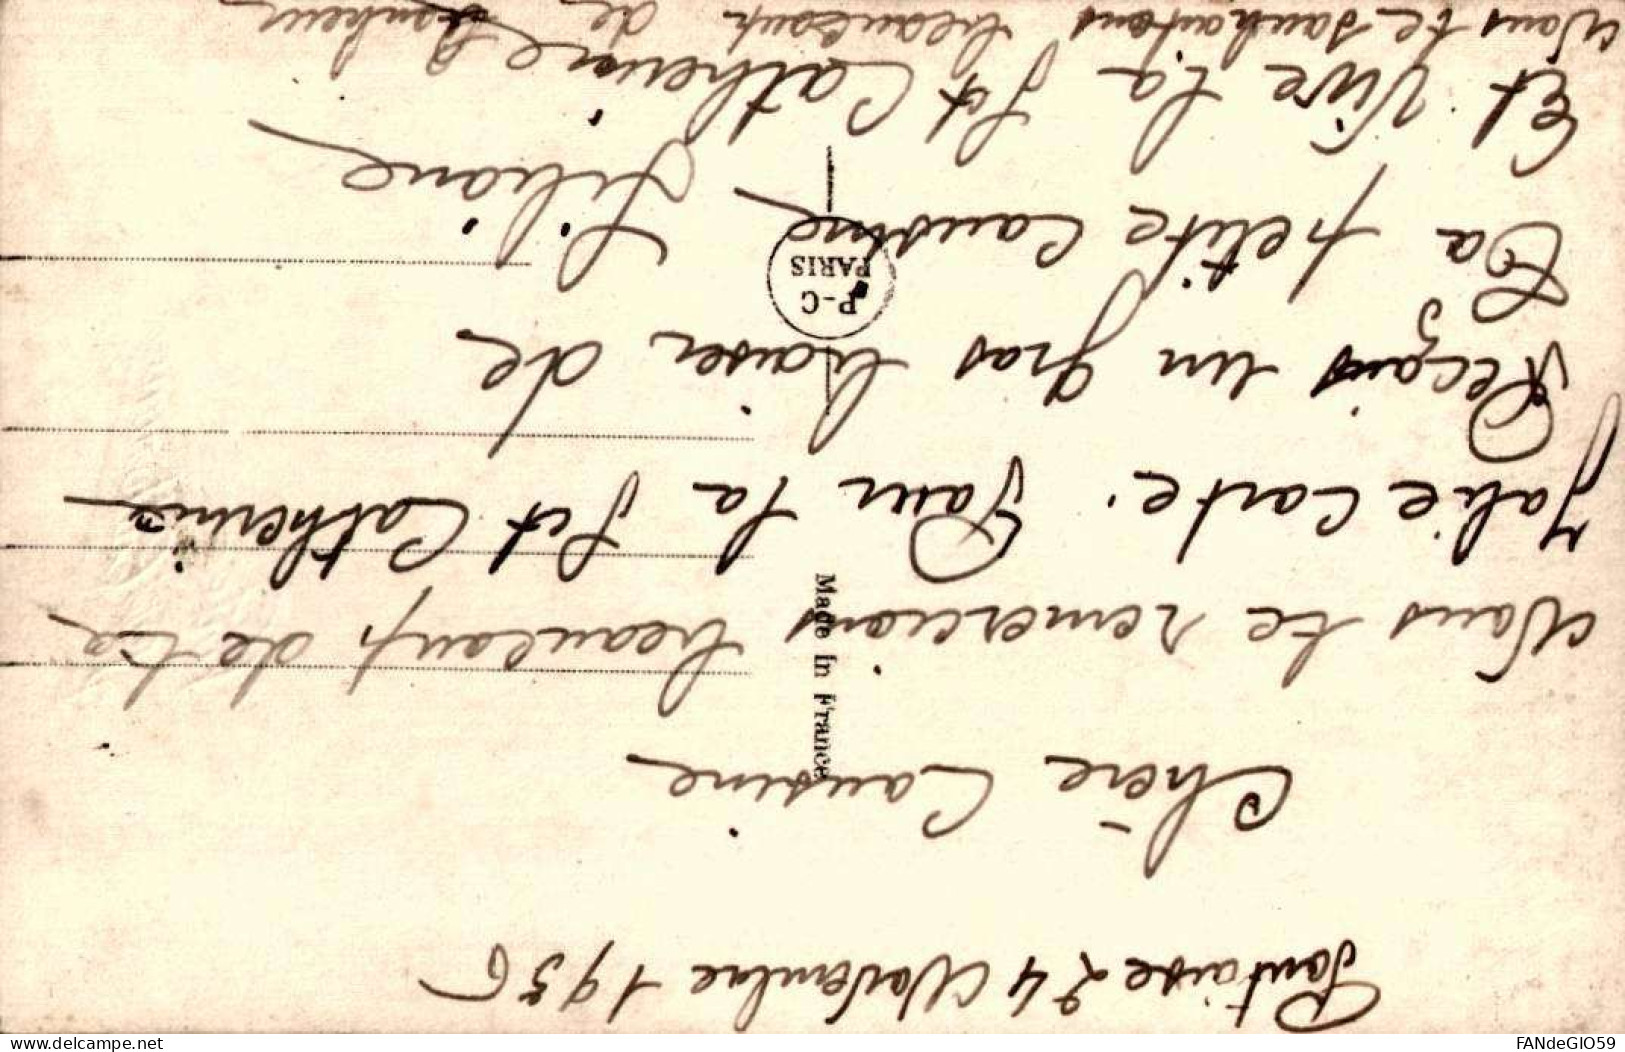 Pontoise 24 Novembre 1956
Chère Cousine
Nous te remercions beaucoup de ta
Jolie carte. Pour la St Catherine
Reçois un gros baiser de
Ta petite Cousine Liliane
Et Vive La St Catherine
Nous te souhaitons beaucoup de bonheur
P-C
PARIS
Made in France
www.delcampe.net
FANdeGIO59